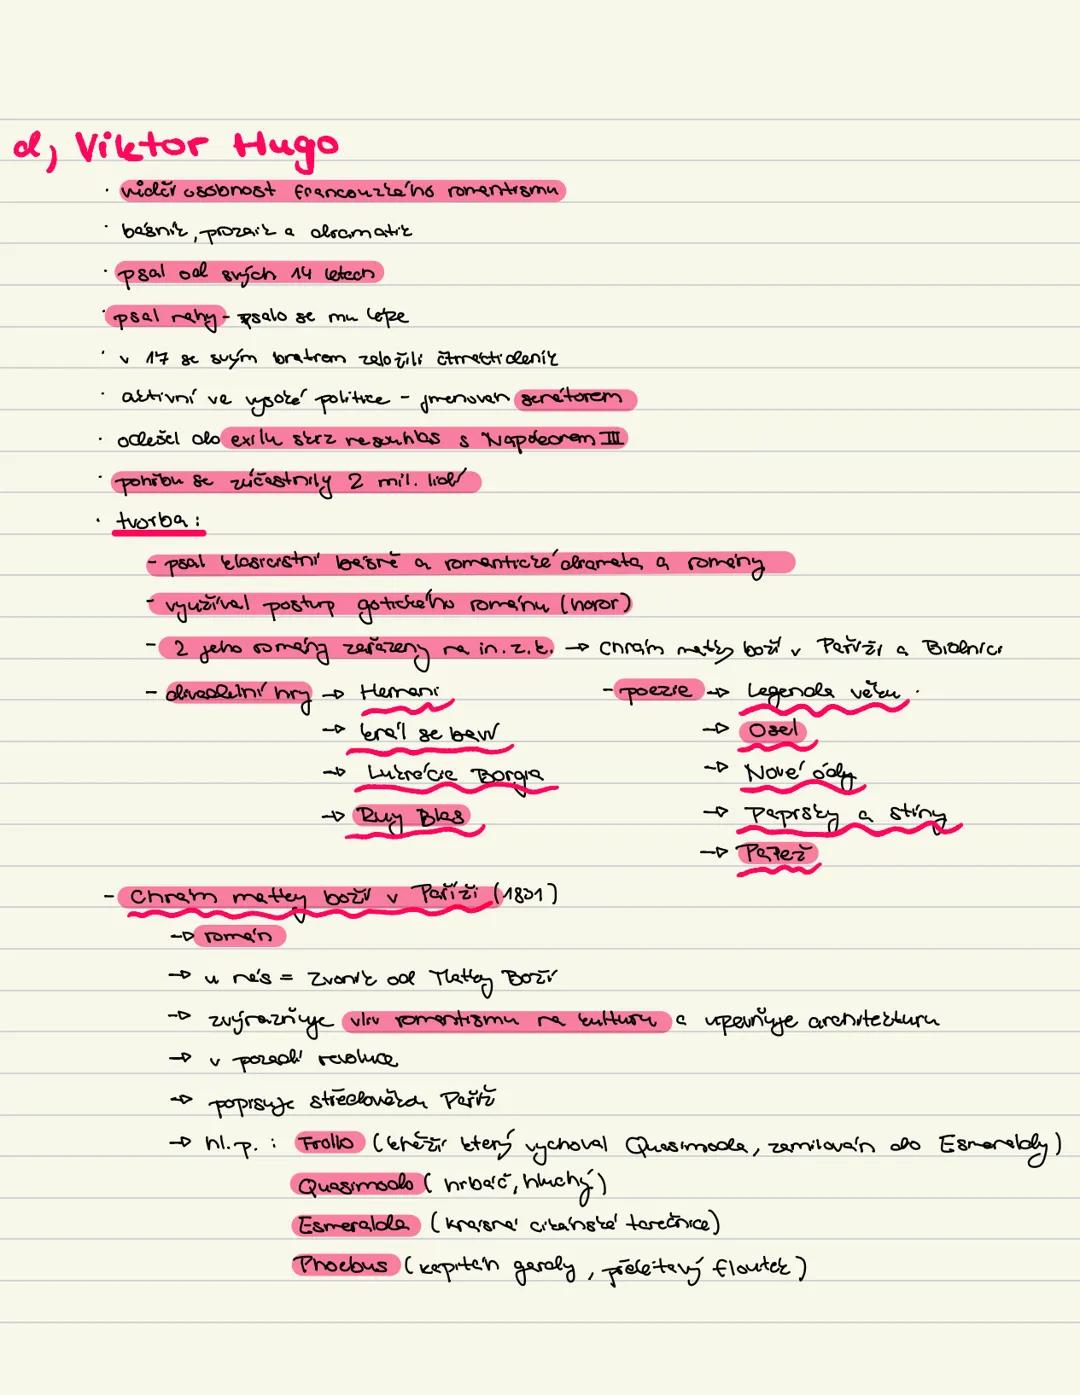 d, Viktor Hugo
· vůdčí osobnost francouzského romantismu
· básník, prozaik a dramatik
· psal od svých 14 letech
· psal nahý - psalo se mu lépe
· v 17 se svým bratrem založili čtrnáctideník
· aktivní ve vysoké politice - jmenován senátorem
· odešel do exilu skrz nesouhlas s Napoleonem III
· pohřbu se zúčastnily 2 mil. lidí
· tvorba:
- psal klasicistní básně a romantické dramata a romány
- využíval postup gotického románu (horor)
- 2 jeho romány zařazeny na in. z. k. → Chrám matky boží v Paříži a Bídníci
- divadelní hry → Hernani - poezie → Legenda věků.
→ král se baví → Osel
→ Lukrécie Borgia → Nové ódy
→ Ruy Blas → Paprsky a stíny
→ Papež
- Chrám matky boží v Paříži (1831)
→ román
→ u nás = Zvoník od Matky Boží
→ zvýrazňuje vliv romantismu na kulturu a upevňuje architekturu
→ v pozadí revoluce
→ popisuje středověkou Paříž
→ hl. p. : Frollo (kněží který vychoval Quasimoda, zamilován do Esmeraldy)
Quasimodo (hrbáč, hluchý)
Esmeralda (krásná cikánská tanečnice)
Phoebus (kapitán gardy, přelétavý floutek)